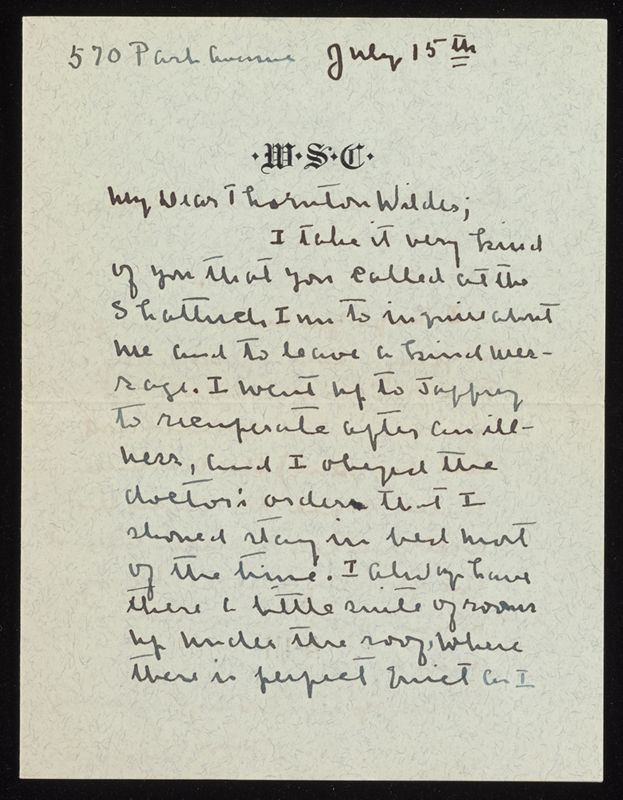 570 Park Avenue July 15th
·W·S·C·
My Dear Thornton Wilder;
I take it very kind
of you that you called at the
Shattuck Inn to inquire about
me and to leave a kind mes-
sage. I went up to Jaffrey
to recuperate after an ill-
ness, and I obeyed the
doctor's orders that I
should stay in bed most
of the time. I always have
there a little suite of rooms
up under the roof, where
there is perfect quiet as I